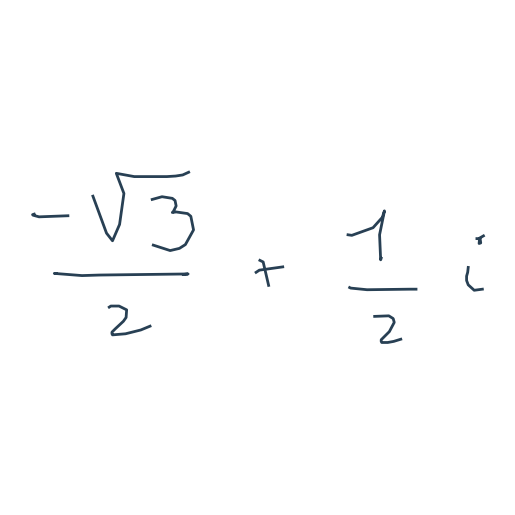 \frac{-\sqrt{3}}{2} + \frac{1}{2} i